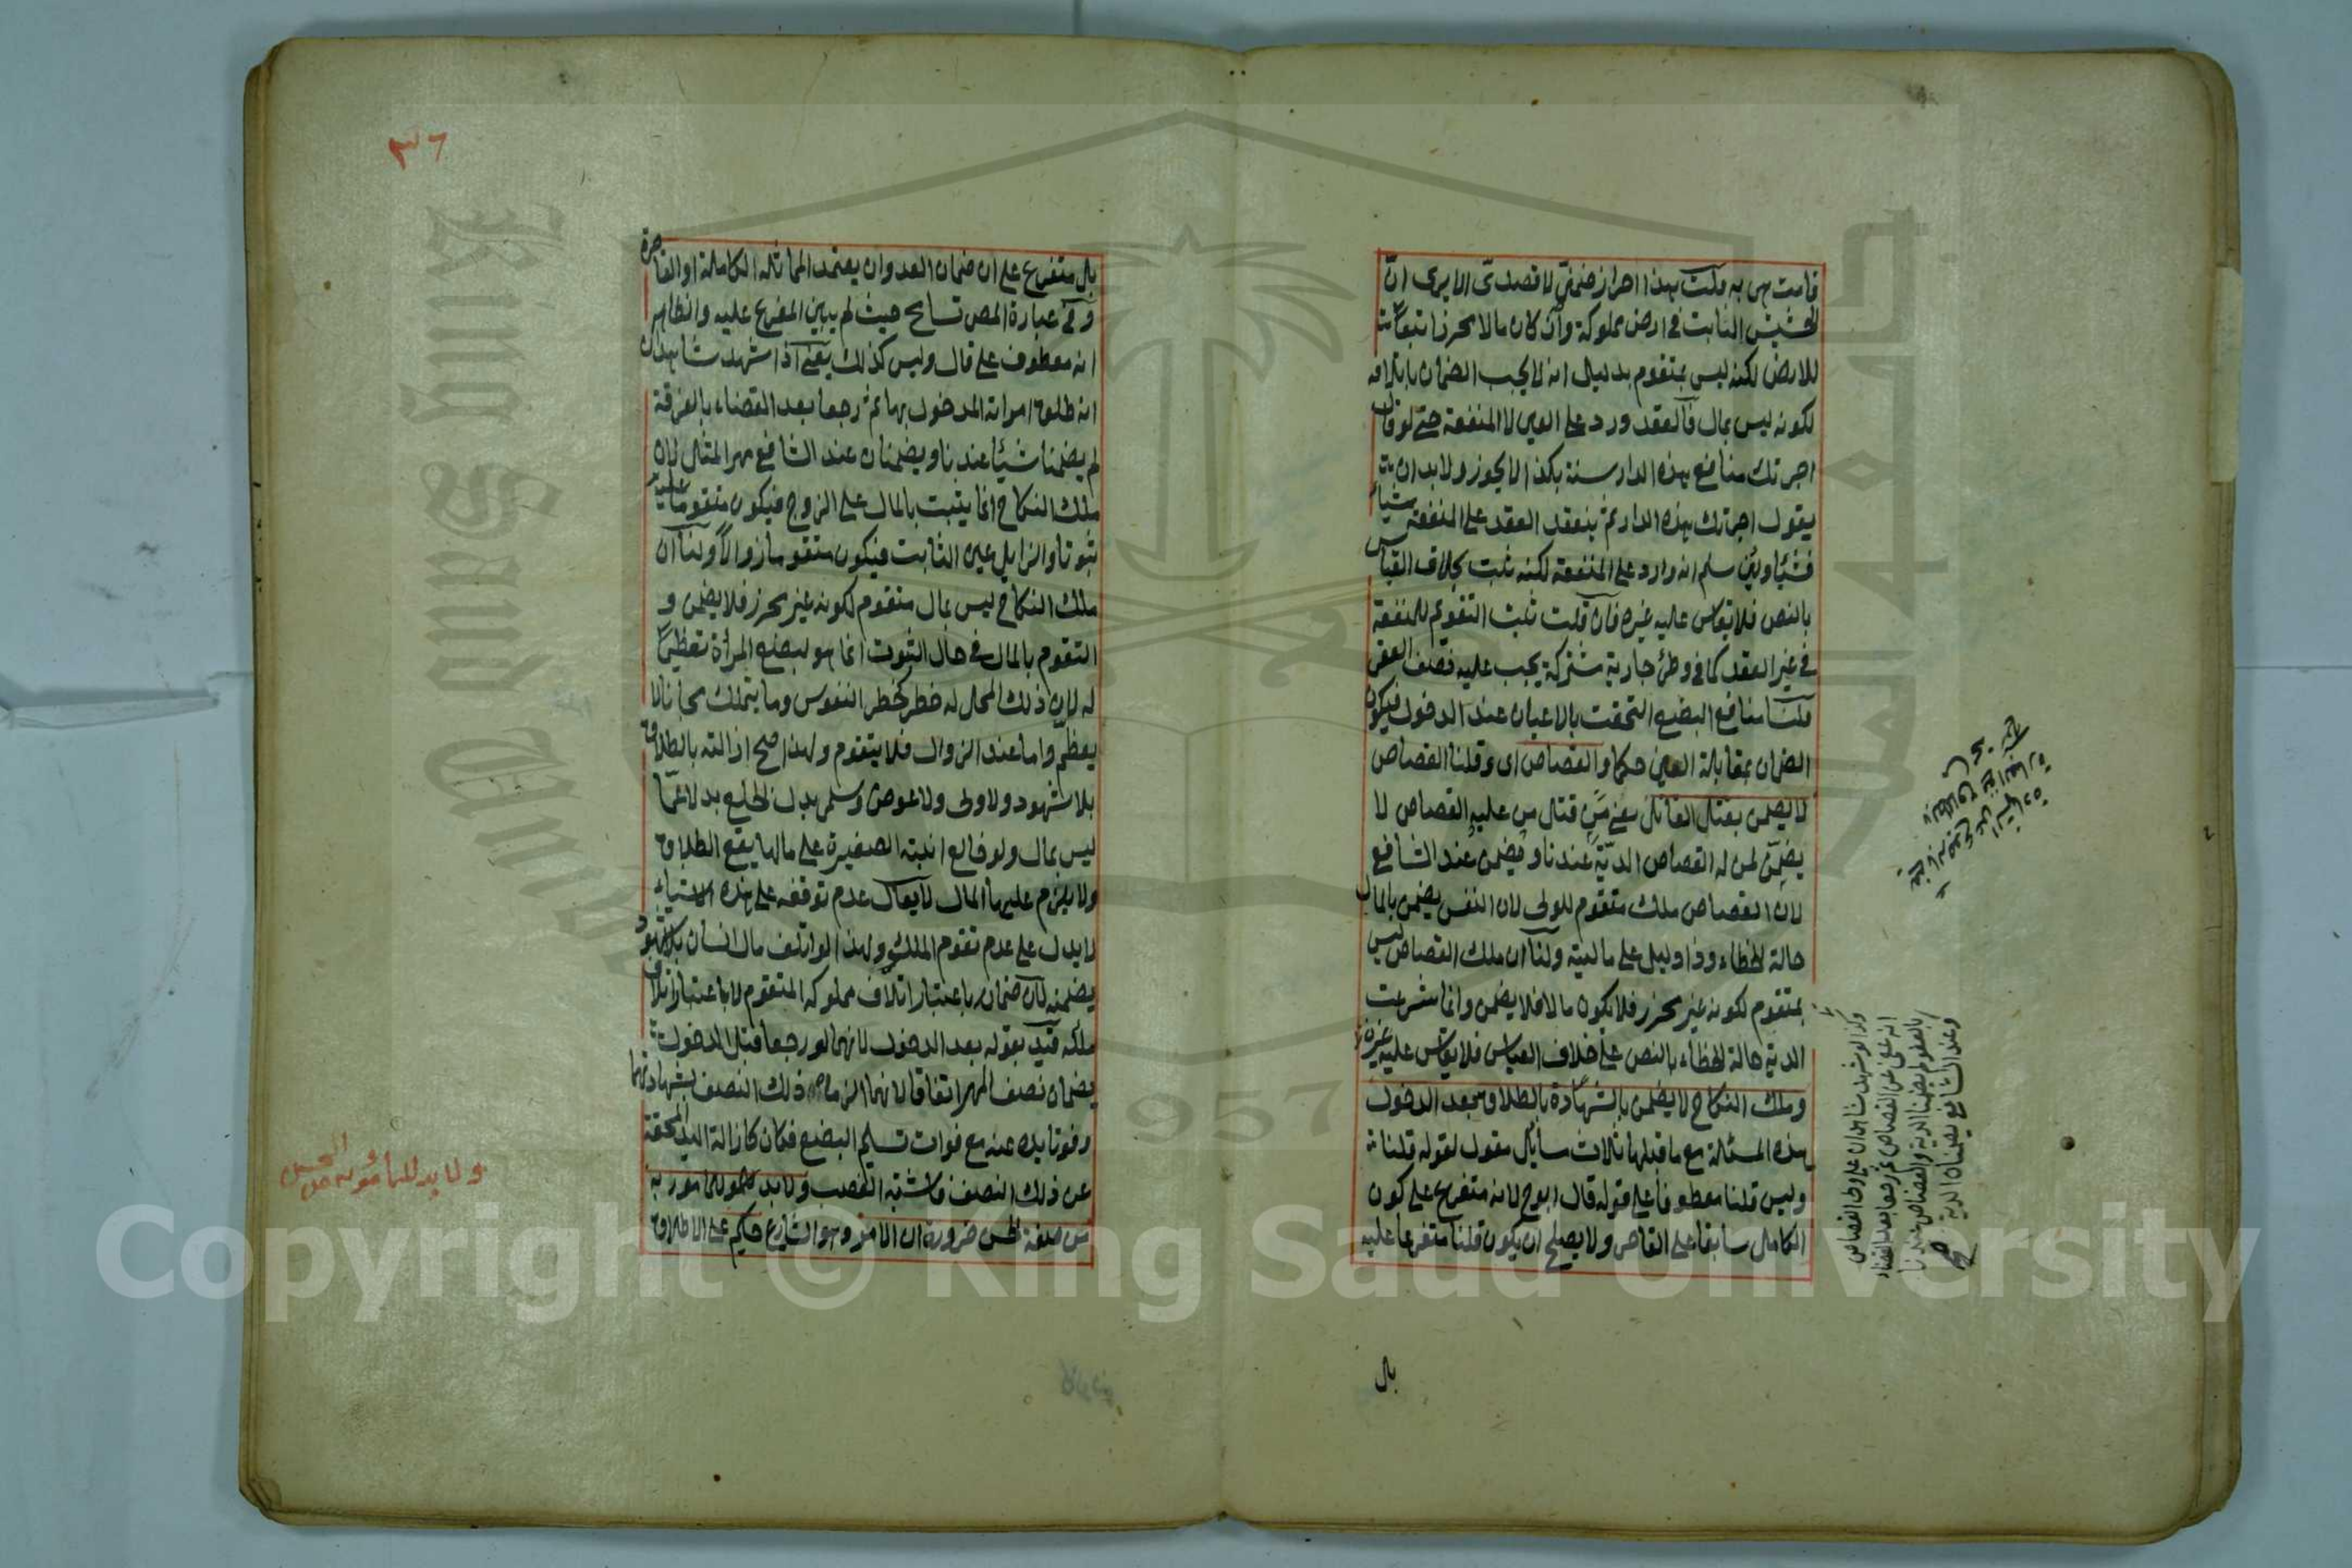 قامت هى به قلت هذا احراز ضمنى لا قصدى الا يرى ان
الحشيش النابت فى ارض مملوكة وان كان مالا محرزا تبعا
للارض لكنه ليس بمتقوم بدليل انه لا يجب الضمان باتلافه
لكونه ليس بمال فالعقد ورد على العين لا المنفعة حتى لو قال
اجرتك منافع هذه الدار سنة بكذا لا يجوز ولا بد ان
يقول اجرتك هذه الدار ثم ينعقد العقد على المنفعة شيئا
فشيئا ولئن سلم انه وارد على المنفعة لكنه ثبت بخلاف القياس
بالنص فلا يقاس عليه غيره فان قلت ثبت التقوم للمنفعة
فى غير العقد كما فى وطئ جارية مشتركة يجب عليه نصف العقر
قلت منافع البضع التحقت بالاعيان عند الدخول فيكون
الضمان بمقابلة العين حكما والقصاص اى وقلنا القصاص
لا يضمن بقتل القاتل يعنى من قتل من عليه القصاص لا
يضمن لمن له القصاص الدية عندنا ويضمن عند الشافع
لان القصاص ملك متقوم للولى لان النفس يضمن بالمال
حالة الخطاء وذا دليل على ماليته ولنا ان ملك القصاص ليس
بمتقوم لكونه غير محرز فلا يكون مالا فلا يضمن وانما شرعت
الدية حالة الخطاء بالنص على خلاف القياس فلا يقاس عليه غيره
وملك النكاح لا يضمن بالشهادة بالطلاق بعد الدخول
هذه المسئلة مع ما قبلها ثلاث مسائل مقول لقوله قلنا
وليس قلنا معطوفا على قوله قال ابو ح لانه متفرع على كون
الكامل سابقا على القاصر ولا يصلح ان يكون قلنا متفرعا عليه
وكذا لو شهد شاهدان على ولى القصاص
انه عفى عن القصاص ثم رجعا بعد القضاء
بالعفو لم يضمنا الدية والقصاص عندنا
وعند الشافع يضمنان الدية صح
بل
٣٦
بل متفرع على ان ضمان العدوان يعتمد المماثلة الكاملة او القاصرة
وفى عبارة المص تسامح حيث لم يبين المفرع عليه والظاهر
انه معطوف على قال وليس كذلك يعنى اذا شهد شاهدان
انه طلق امراته المدخول بها ثم رجعا بعد القضاء بالفرقة
لم يضمنا شيئا عندنا ويضمنان عند الشافع مهر المثل لان
ملك النكاح انما يثبت بالمال على الزوج فيكون متقوما عليه
ثبوتا والزايل عين الثابت فيكون متقوما زوالا ولنا ان
ملك النكاح ليس بمال متقوم لكونه غير محرز فلا يضمن و
التقوم بالمال فى حال الثبوت انما هو لبضع المرأة تعظيما
له لان ذلك المحل له خطر كخطر النفوس وما يتملك مجانا لا
يعظم واما عند الزوال فلا يتقوم ولهذا صح ازالته بالطلاق
بلا شهود ولا ولى ولا عوض وسلم بدل الخلع بدلا عما
ليس بمال ولو خالع ابنته الصغيرة على مالها يقع الطلاق
ولا يلزم عليها المال لا يقال عدم توقفه على هذه الاشياء
لا يدل على عدم تقوم الملك ولهذا لو اتلف مال انسان بلا شهود
يضمنه لان ضمانه باعتبار اتلاف مملوكه المتقوم لا باعتبار اتلاف
ملكه قيد بقوله بعد الدخول لانهما لو رجعا قبل الدخول
يضمنان نصف المهر اتفاقا لانهما الزماه ذلك النصف بشهادتهما
وفوتا يده عنه مع فوات تسليم البضع فكان كازالة اليد المحققة
عن ذلك النصف فاشبه الغصب ولا بد للمامور به
من صفة الحسن ضرورة ان الامر وهو الشارع حكيم على الاطلاق
ولا بد للمأمور به من الحسن